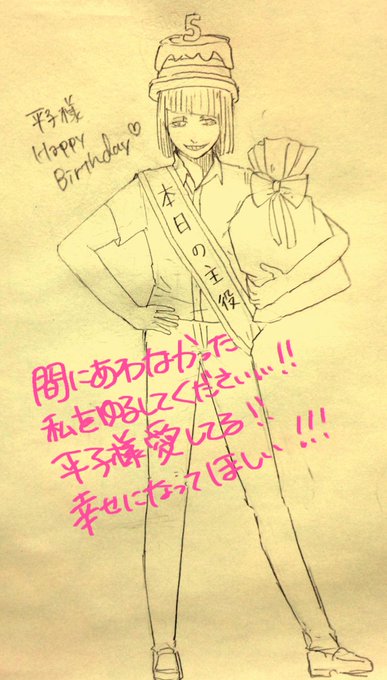 5
平子様
Happy
Birthday♡
本日の主役
間にあわなかった
私をゆるしてください…!!
平子様愛してる!!
幸せになってほしい!!!